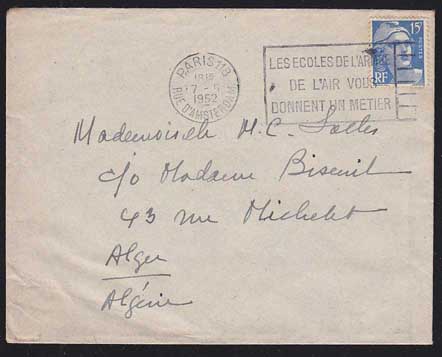 PARIS 118
18H
7 - 5
1952
RUE D'AMSTERDAM
LES ECOLES DE L'ARMEE
DE L'AIR VOUS
DONNENT UN METIER
15F
RF
Mademoiselle M. C. Salles
c/o Madame Biscuit
43 rue Michelet
Alger
Algérie